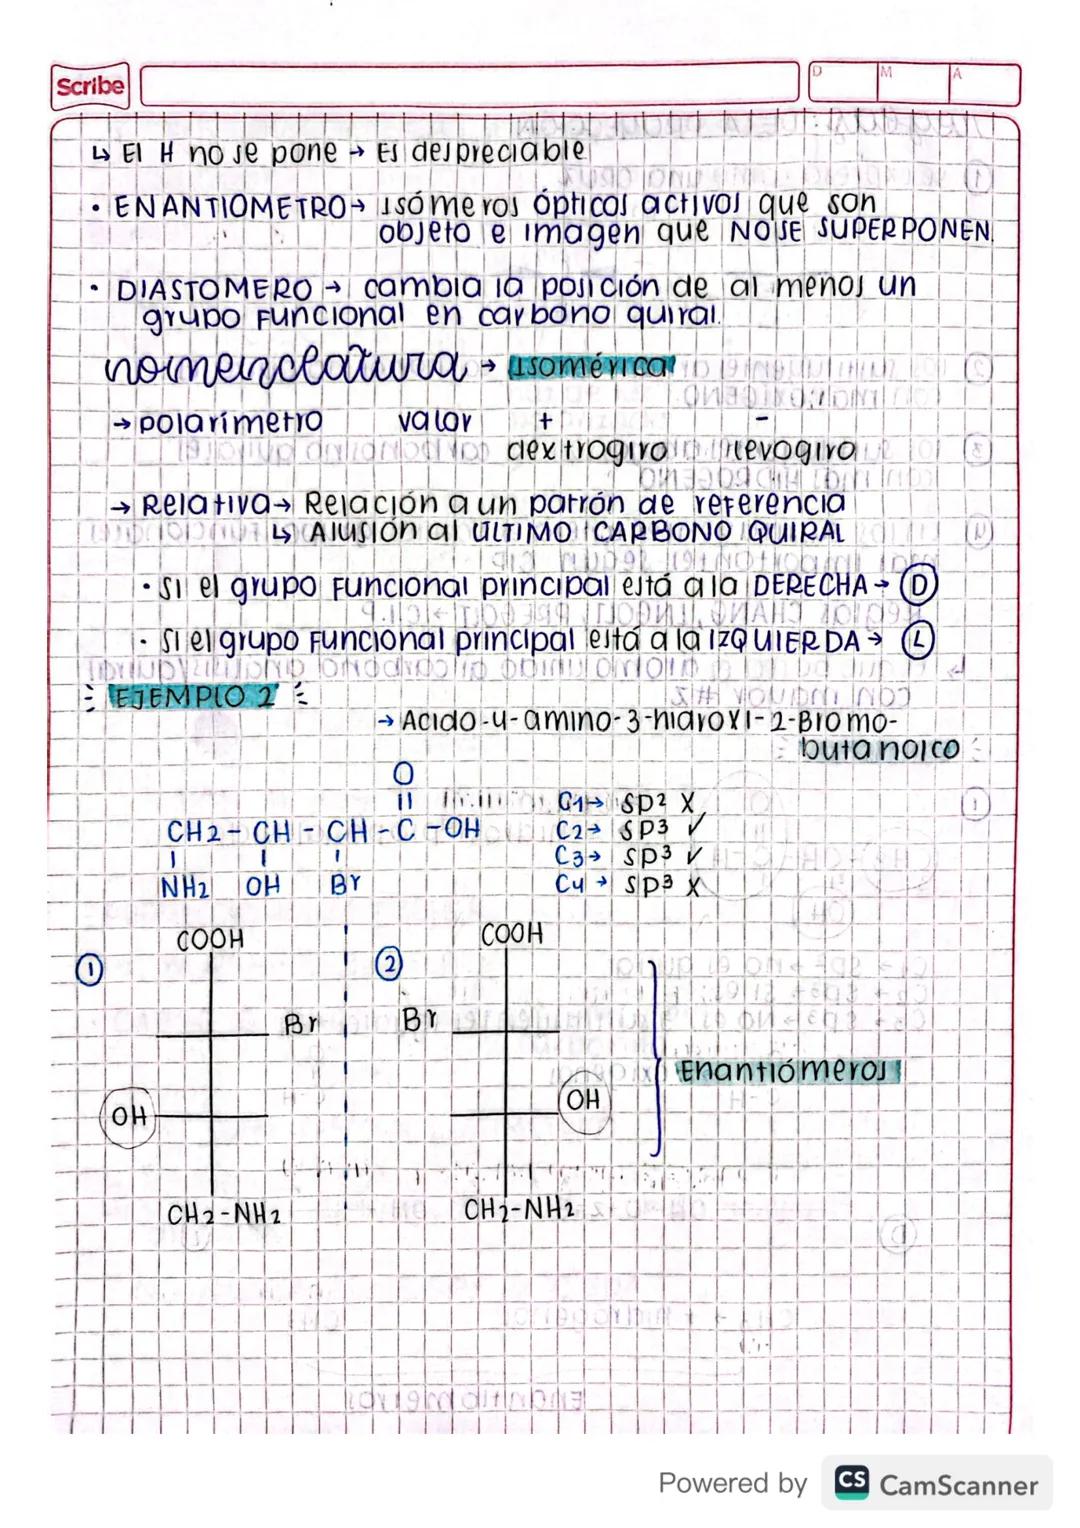 Scribe
D M A
↳ El H no se pone → Es despreciable
• ENANTIOMETRO → isómeros ópticos activos que son
objeto e imagen que NO SE SUPERPONEN.
• DIASTOMERO → cambia la posición de al menos un
grupo funcional en carbono quiral.
nomenclatura → Isomérica
→ polarímetro valor + -
dextrogiro levogiro
→ Relativa → Relación a un patrón de referencia
↳ Alusión al ULTIMO CARBONO QUIRAL
• Si el grupo funcional principal está a la DERECHA → D
• Si el grupo funcional principal está a la IZQUIERDA → L
EJEMPLO 2
→ Acido-4-amino-3-hidroxi-2-Bromo-
butanoico
O
|| C1→ sp2 X
CH2 - CH - CH - C - OH C2→ sp3 ✓
| | | C3→ sp3 ✓
NH2 OH Br C4→ sp3 X
COOH COOH
1 2
Br Br
Enantiómeros
OH OH
CH2-NH2 CH2-NH2
Powered by CS CamScanner